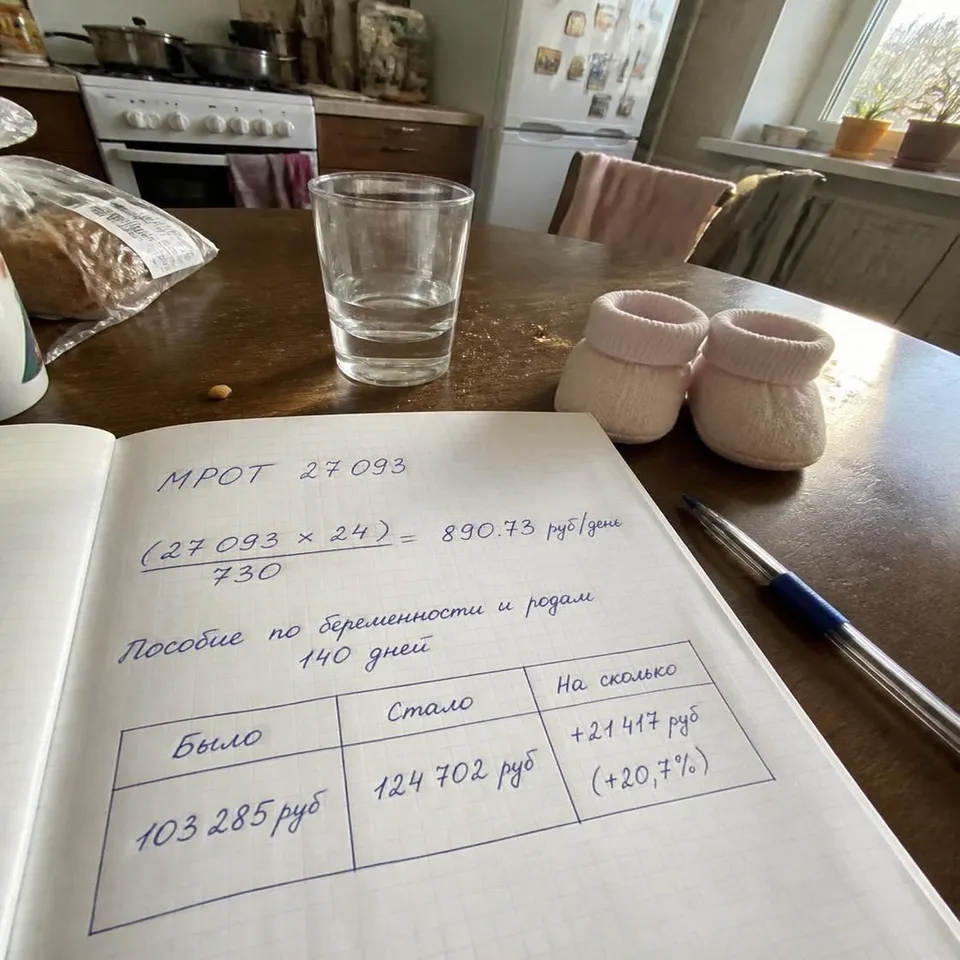 МРОТ 27 093
(27 093 × 24) = 890.73 руб/день
730
Пособие по беременности и родам
140 дней
Было Стало На сколько
103 285 руб 124 702 руб +21 417 руб
(+20,7%)